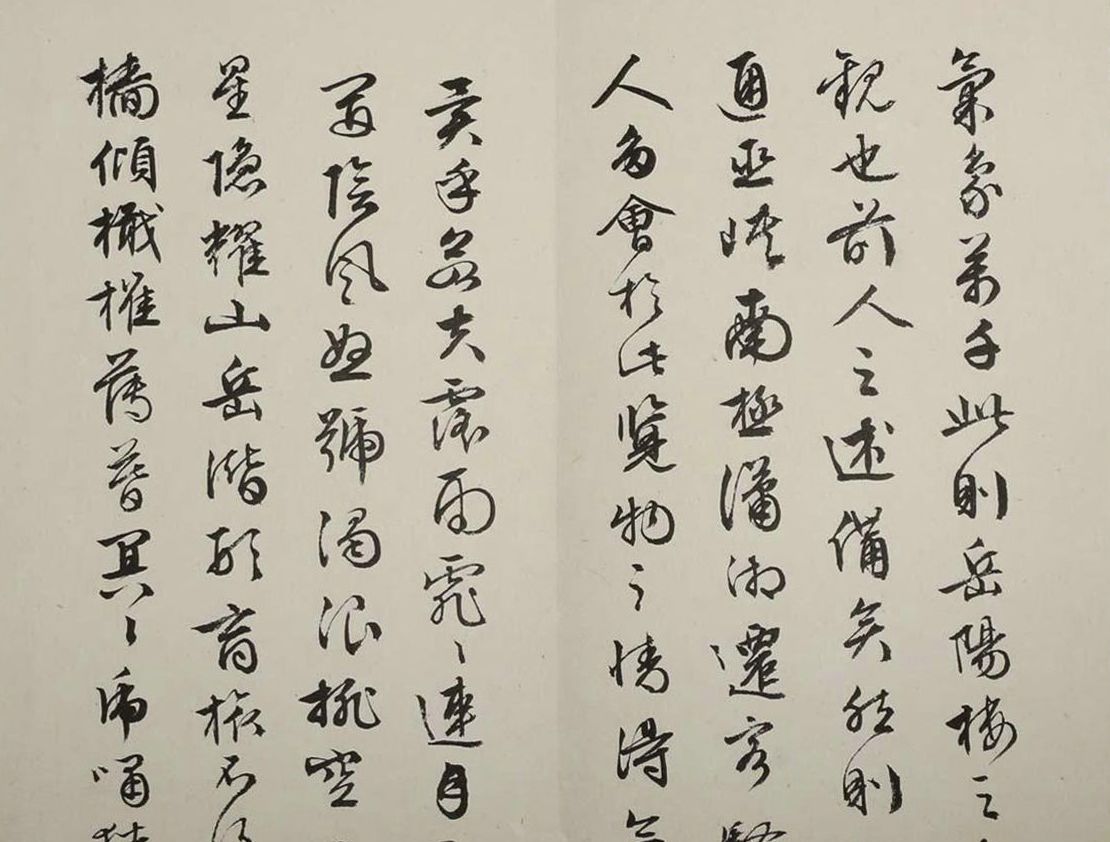 氣象萬千此則岳陽樓之
觀也前人之述備矣然則
通巫峽南極瀟湘遷客
人多會於此覽物之情得
異乎若夫霪雨霏〻連月
開陰風怒號濁浪排空
星隱耀山岳潛形商旅不
檣傾檝摧薄暮冥〻虎嘯